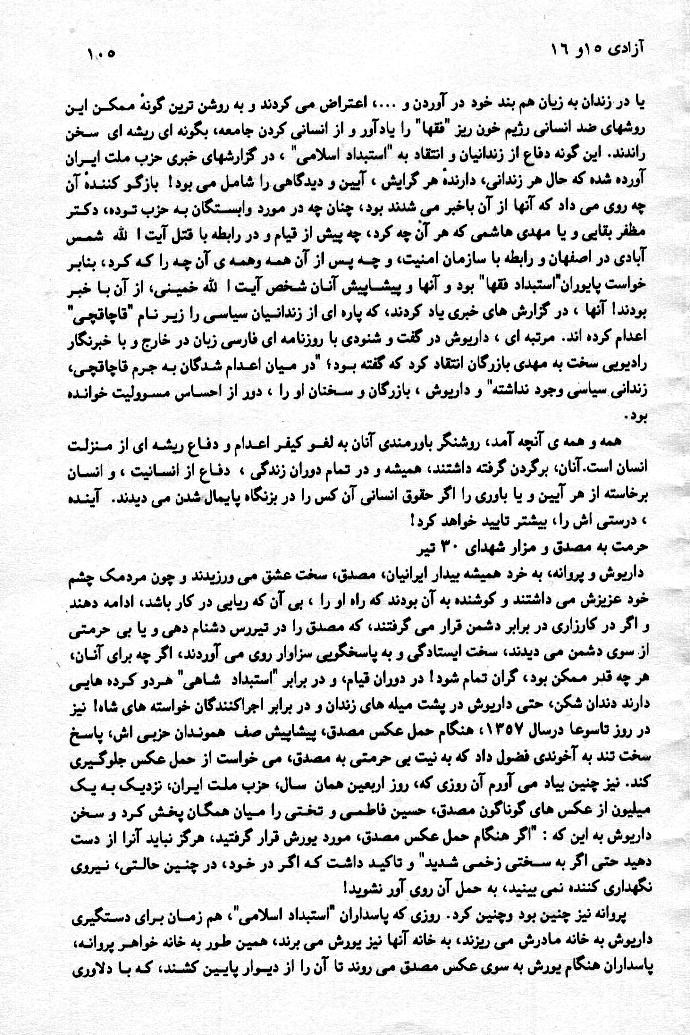 آزادی ۱۵و ۱۶
۱۰۵
یا در زندان به زیان هم بند خود در آوردن و ...، اعتراض می کردند و به روشن ترین گونهٔ ممکن این
روشهای ضد انسانی رژیم خون ریز "فقها" را یادآور و از انسانی کردن جامعه، بگونه ای ریشه ای سخن
راندند. این گونه دفاع از زندانیان و انتقاد به "استبداد اسلامی" ، در گزارشهای خبری حزب ملت ایران
آورده شده که حال هر زندانی، دارندهٔ هر گرایش ، آیین و دیدگاهی را شامل می بود! بازگو کنندهٔ آن
چه روی می داد که آنها از آن باخبر می شدند بود، چنان چه در مورد وابستگان به حزب توده، دکتر
مظفر بقایی و یا مهدی هاشمی که هر آن چه کرد، چه پیش از قیام و در رابطه با قتل آیت ا لله شمس
آبادی در اصفهان و رابطه با سازمان امنیت، و چه پس از آن همه وهمه ی آن چه را که کرد، بنابر
خواست پایوران"استبداد فقها" بود و آنها و پیشاپیش آنان شخص آیت ا لله خمینی، از آن با خبر
بودند! آنها ، در گزارش های خبری یاد کردند، که پاره ای از زندانیان سیاسی را زیر نام "قاچاقچی"
اعدام کرده اند. مرتبه ای ، داریوش در گفت و شنودی با روزنامه ای فارسی زبان در خارج و با خبرنگار
رادیویی سخت به مهدی بازرگان انتقاد کرد که گفته بود؛ "در میان اعدام شدگان به جرم قاچاقچی،
زندانی سیاسی وجود نداشته" و داریوش ، بازرگان و سخنان او را ، دور از احساس مسوولیت خوانده
بود.
همه و همه ی آنچه آمد، روشنگر باورمندی آنان به لغو کیفر اعدام و دفاع ریشه ای از منزلت
انسان است.آنان، برگردن گرفته داشتند، همیشه و در تمام دوران زندگی ، دفاع از انسانیت ، و انسان
برخاسته از هر آیین و یا باوری را اگر حقوق انسانی آن کس را در بزنگاه پایمال شدن می دیدند. آینده
، درستی اش را، بیشتر تایید خواهد کرد!
حرمت به مصدق و مزار شهدای ۳۰ تیر
داریوش و پروانه، به خرد همیشه بیدار ایرانیان، مصدق، سخت عشق می ورزیدند و چون مردمک چشم
خود عزیزش می داشتند و کوشنده به آن بودند که راه او را ، بی آن که ریایی در کار باشد، ادامه دهند
و اگر در کارزاری در برابر دشمن قرار می گرفتند، که مصدق را در تیررس دشنام دهی و یا بی حرمتی
از سوی دشمن می دیدند، سخت ایستادگی و به پاسخگویی سزاوار روی می آوردند، اگر چه برای آنان،
هر چه قدر ممکن بود، گران تمام شود! در دوران قیام، و در برابر "استبداد شاهی" هردو کرده هایی
دارند دندان شکن، حتی داریوش در پشت میله های زندان و در برابر اجراکنندگان خواسته های شاه! نیز
در روز تاسوعا درسال ۱۳۵۷، هنگام حمل عکس مصدق، پیشاپیش صف هموندان حزبی اش، پاسخ
سخت تند به آخوندی فضول داد که به نیت بی حرمتی به مصدق، می خواست از حمل عکس جلوگیری
کند. نیز چنین بیاد می آورم آن روزی که، روز اربعین همان سال، حزب ملت ایران، نزدیک به یک
میلیون از عکس های گوناگون مصدق، حسین فاطمی و تختی را میان همگان پخش کرد و سخن
داریوش به این که : "اگر هنگام حمل عکس مصدق، مورد یورش قرار گرفتید، هرگز نباید آنرا از دست
دهید حتی اگر به سختی زخمی شدید" و تاکید داشت که اگر در خود، در چنین حالتی، نیروی
نگهداری کننده نمی بینید، به حمل آن روی آور نشوید!
پروانه نیز چنین بود وچنین کرد. روزی که پاسداران "استبداد اسلامی"، هم زمان برای دستگیری
داریوش به خانه مادرش می ریزند، به خانه آنها نیز یورش می برند، همین طور به خانه خواهر پروانه،
پاسداران هنگام یورش به سوی عکس مصدق می روند تا آن را از دیوار پایین کشند، که با دلاوری